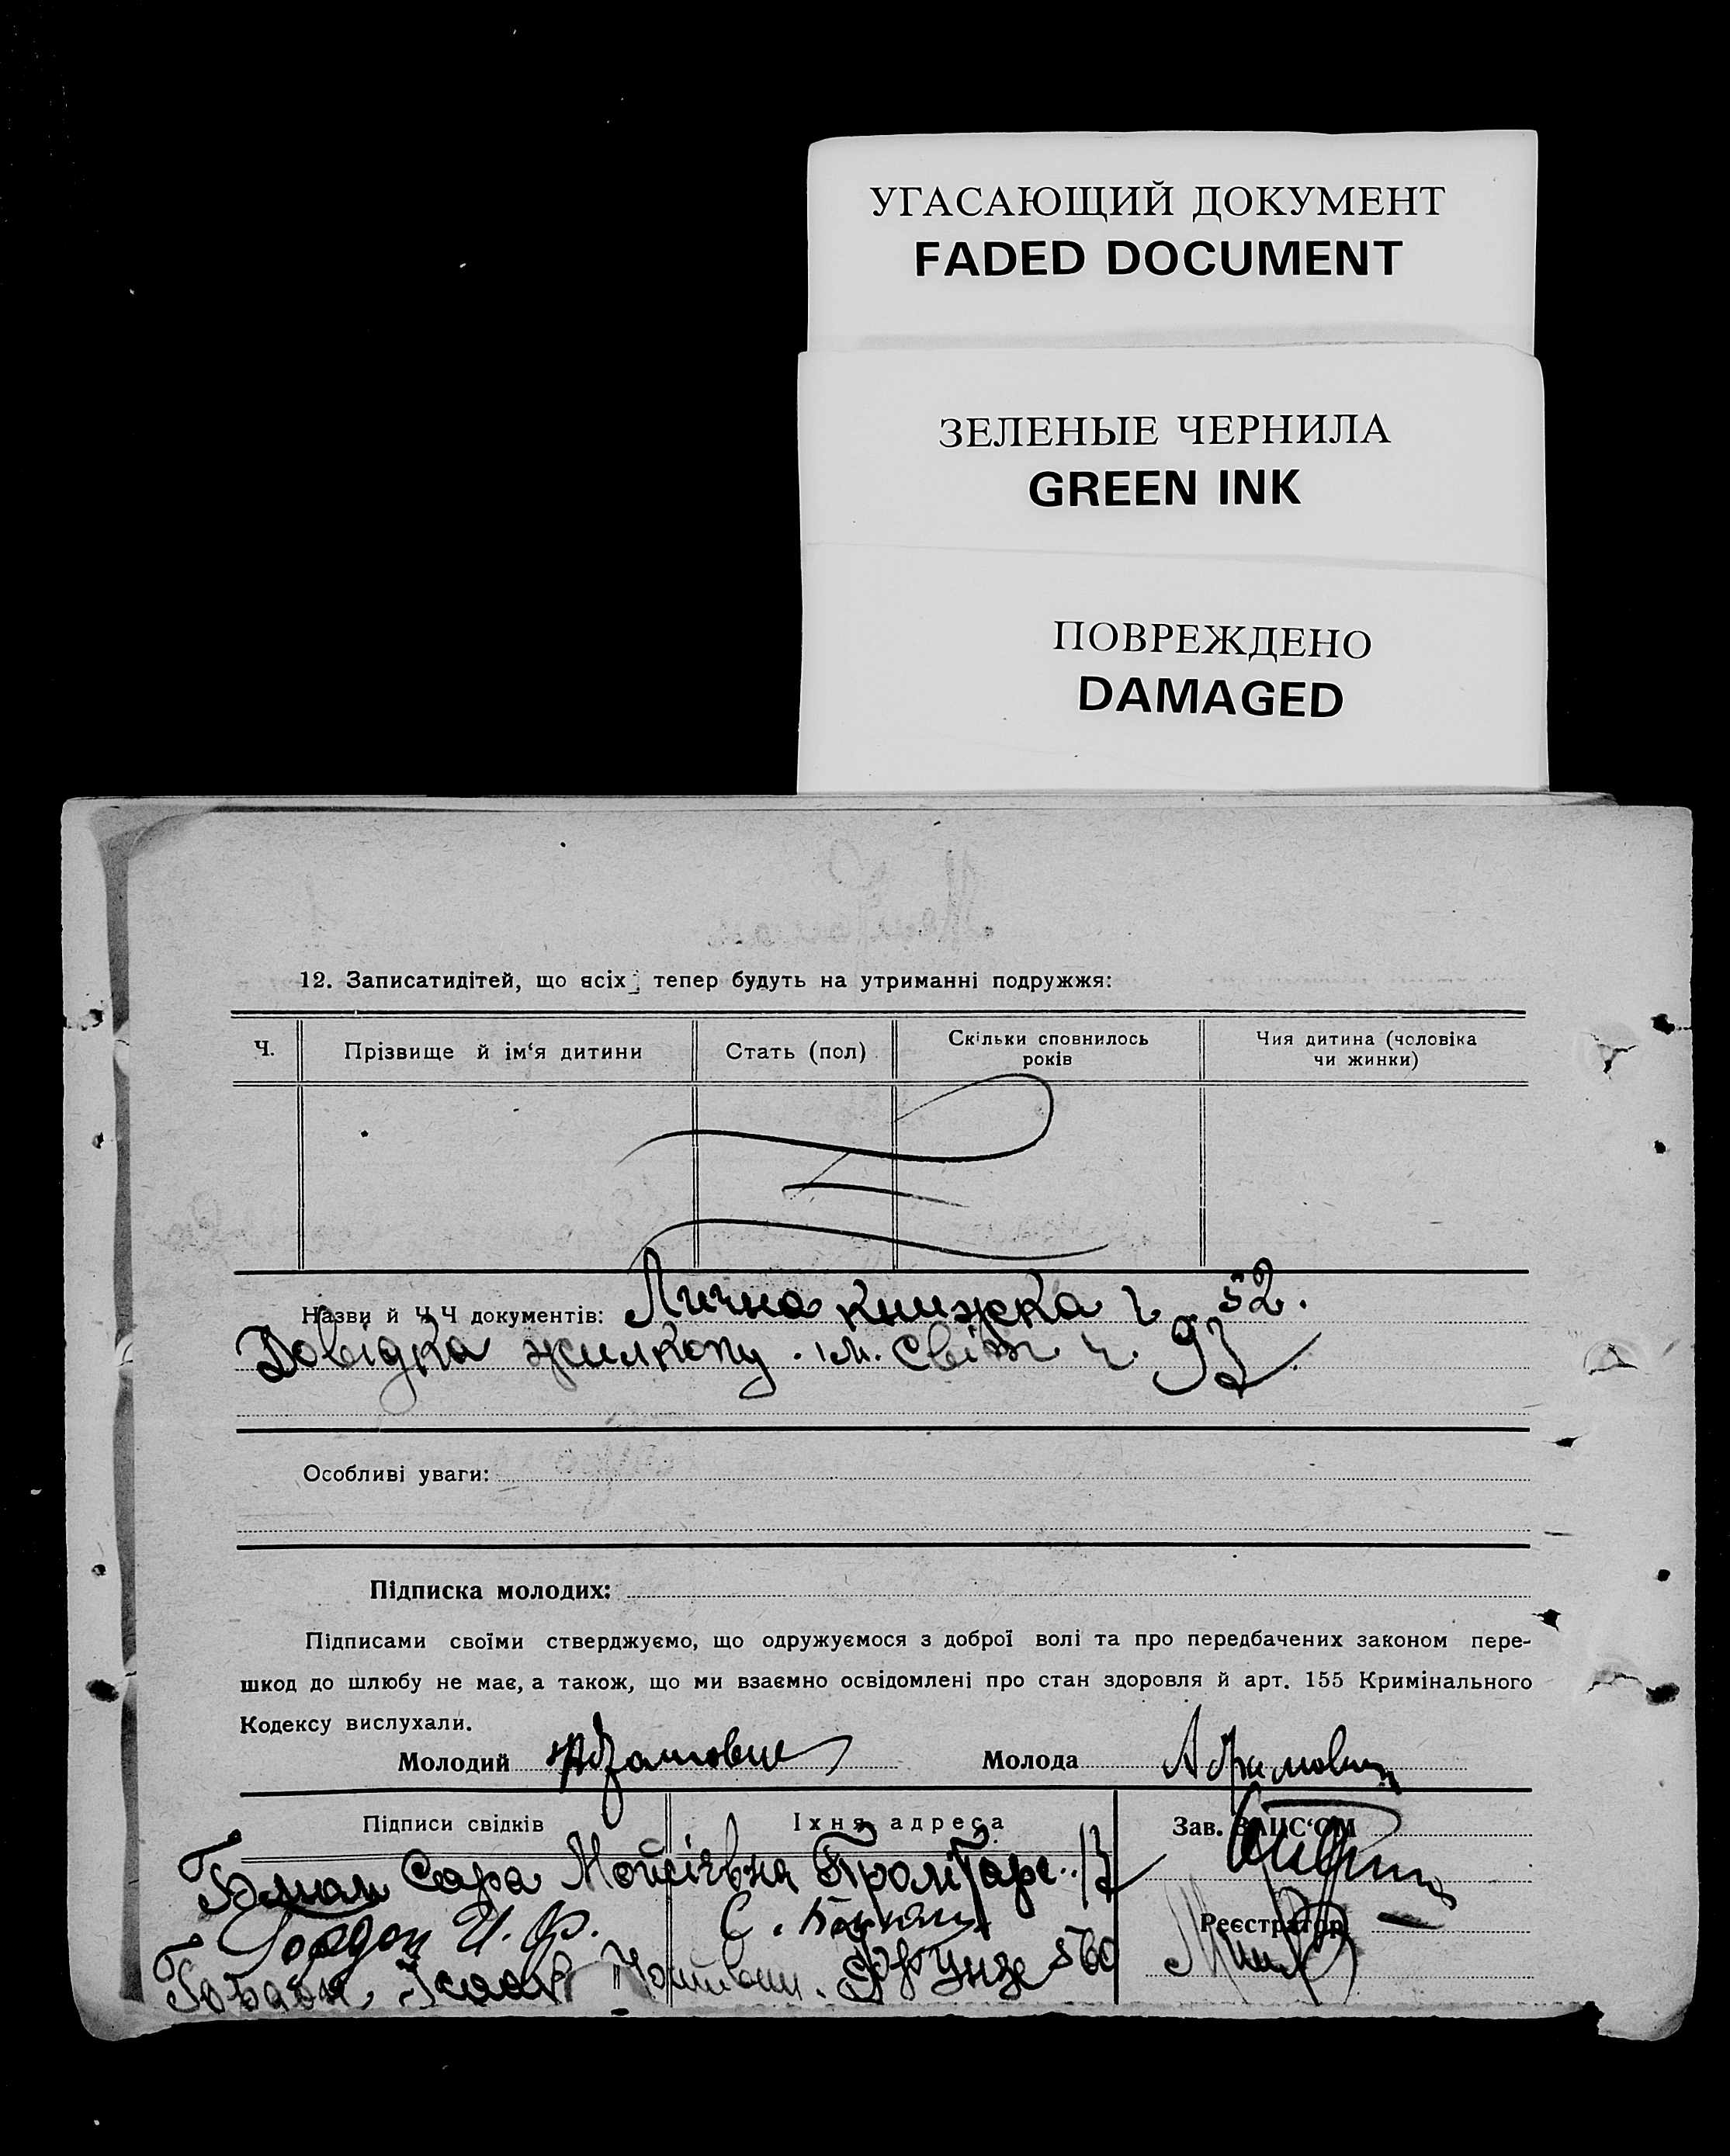 УГАСАЮЩИЙ ДОКУМЕНТ
FADED DOCUMENT
ЗЕЛЕНЫЕ ЧЕРНИЛА
GREEN INK
ПОВРЕЖДЕНО
DAMAGED
12. Записатидітей, що всіх тепер будуть на утриманні подружжя:
Ч.
Прізвище й ім‘я дитини
Стать (пол)
Скільки сповнилось
років
Чия дитина (чоловіка
чи жинки)
Назви й Ч Ч документів: Лична книжка ч 52.
Довідка жилкопу. ім. Світ ч. 93
Особливі уваги:
Підписка молодих:
Підписами своїми стверджуємо, що одружуємося з доброї волі та про передбачених законом пере-
шкод до шлюбу не має, а також, що ми взаємно освідомлені про стан здоровля й арт. 155 Кримінального
Кодексу вислухали.
Молодий Абрамович Молода Абрамович
Підписи свідків
Їхня адреса
Зав. ЗАПС‘ОМ
Сара Мойсієвна Пролетарс. 13
Гордон И. Ф.
Реєстратор
Фрунзе